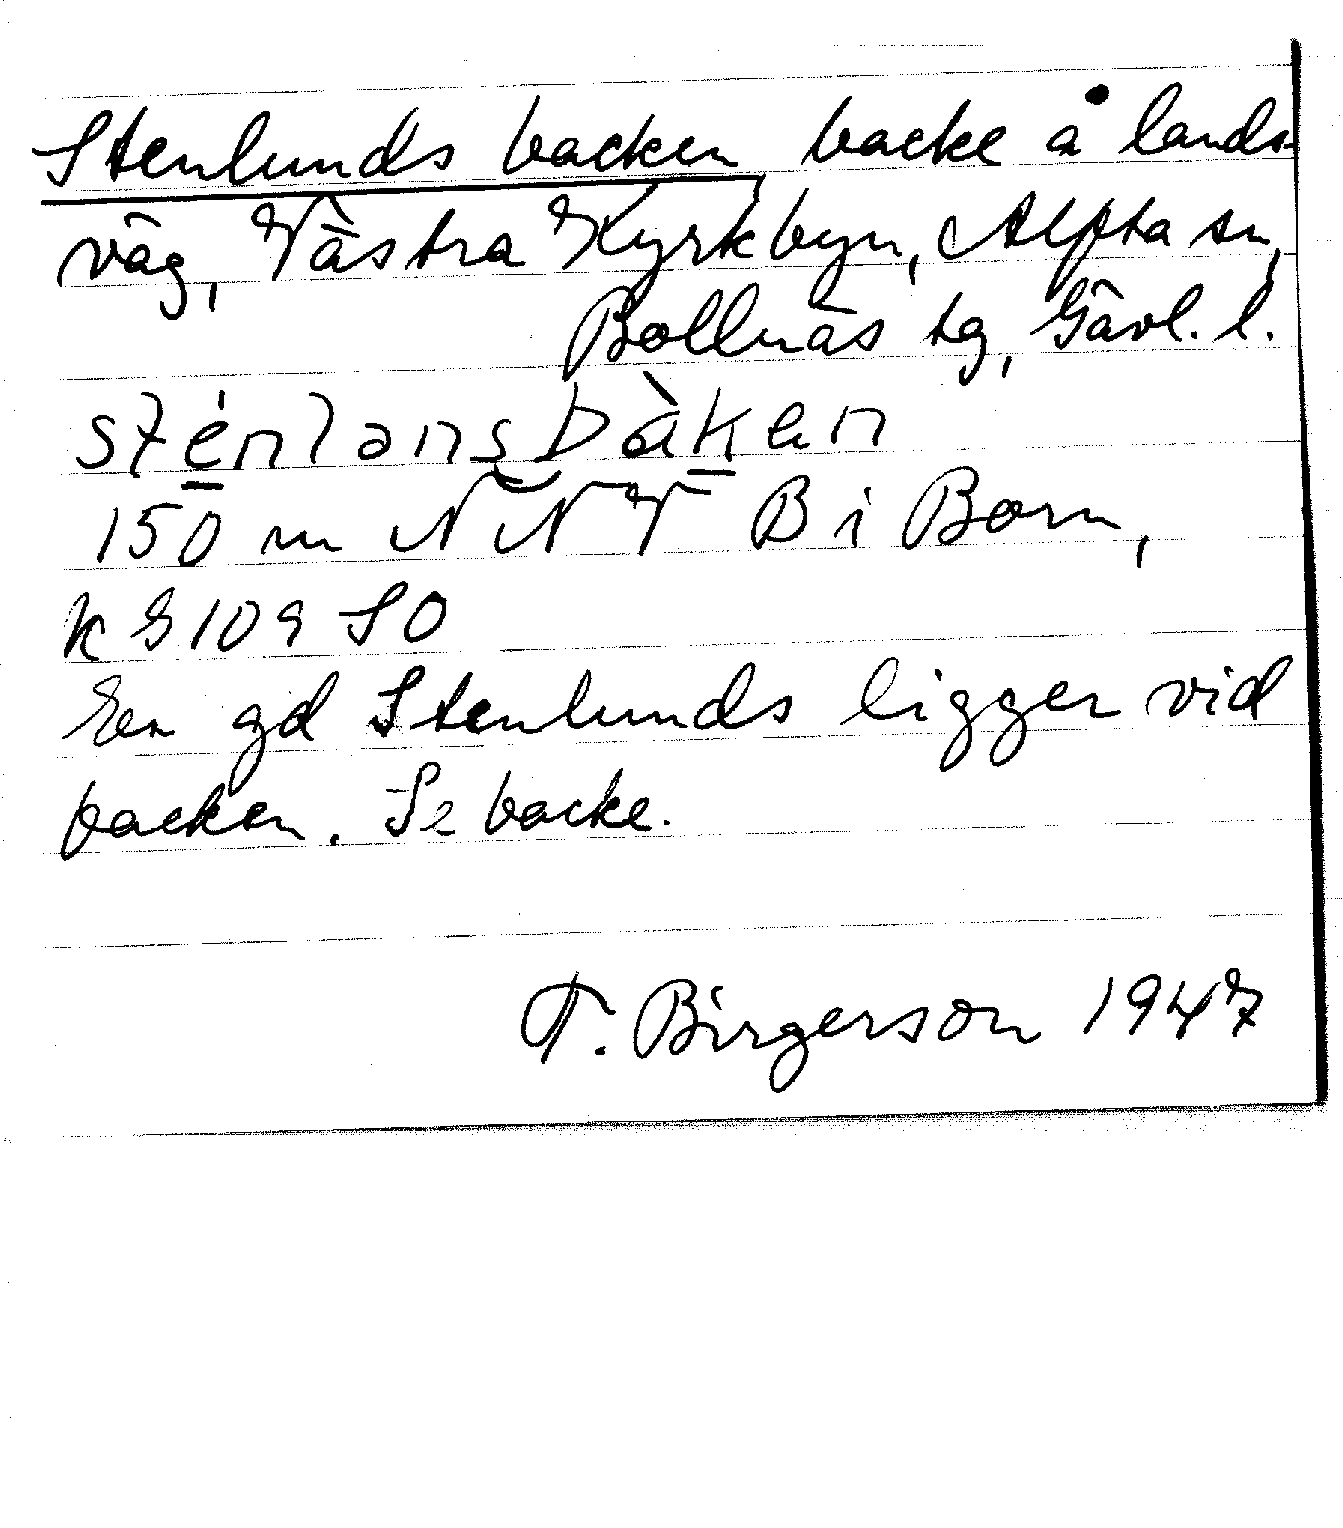 Stenlunds backen backe å lands-
väg, Västra Kyrkbyn, Alfta sn,
Bollnäs tg, Gävl. l.
150 m NNV B i Born,
k S 109 SO
En gd Stenlunds ligger vid
backen. Se backe.
F. Birgerson 1947